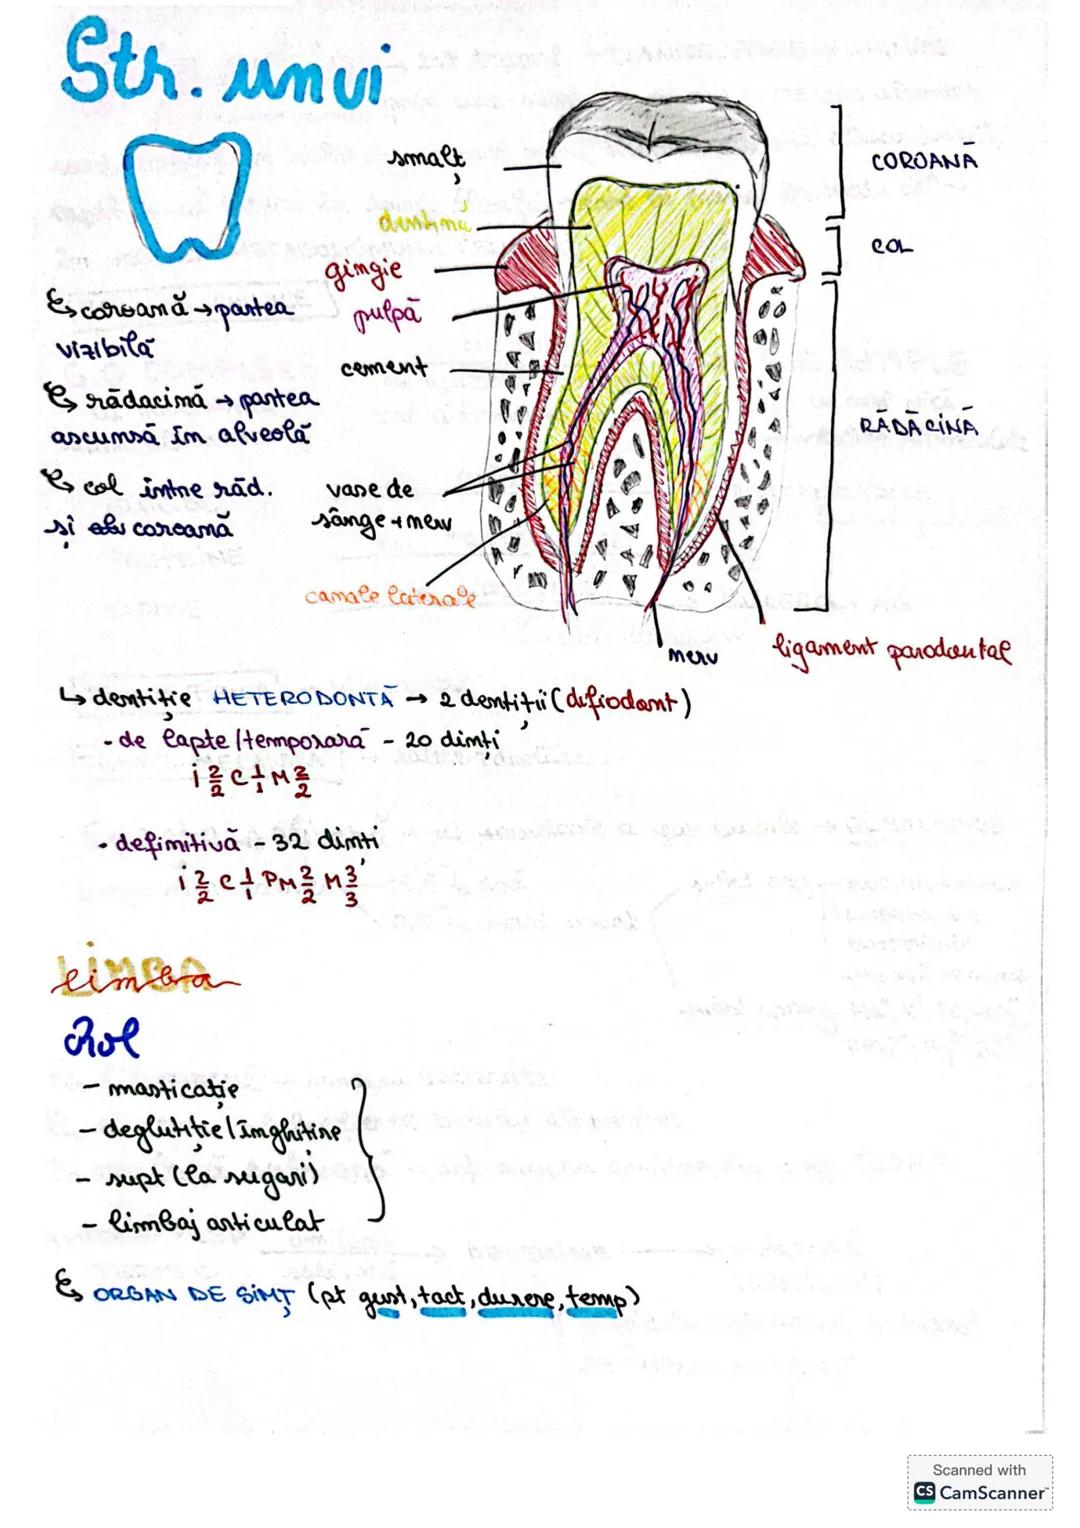 Str. unui
smalț
dentină
gingie
pulpă
cement
vase de
sânge + nerv
canale laterale
nerv
ligament parodontal
COROANĂ
COL
RĂDĂCINĂ
↳ coroană → partea
vizibilă
↳ rădacină → partea
ascunsă în alveolă
↳ col între răd.
și coroană
↳ dentiție HETERODONTĂ → 2 dentiții (difiodont)
- de lapte / temporară - 20 dinți
i 2/2 C 1/1 M 2/2
- definitivă - 32 dinți
i 2/2 C 1/1 PM 2/2 M 3/3
LIMBA
limba
Rol
- masticație
- deglutiție / înghitire
- supt (la sugari)
- limbaj articulat
↳ ORGAN DE SIMȚ (pt gust, tact, durere, temp)
Scanned with
CS CamScanner